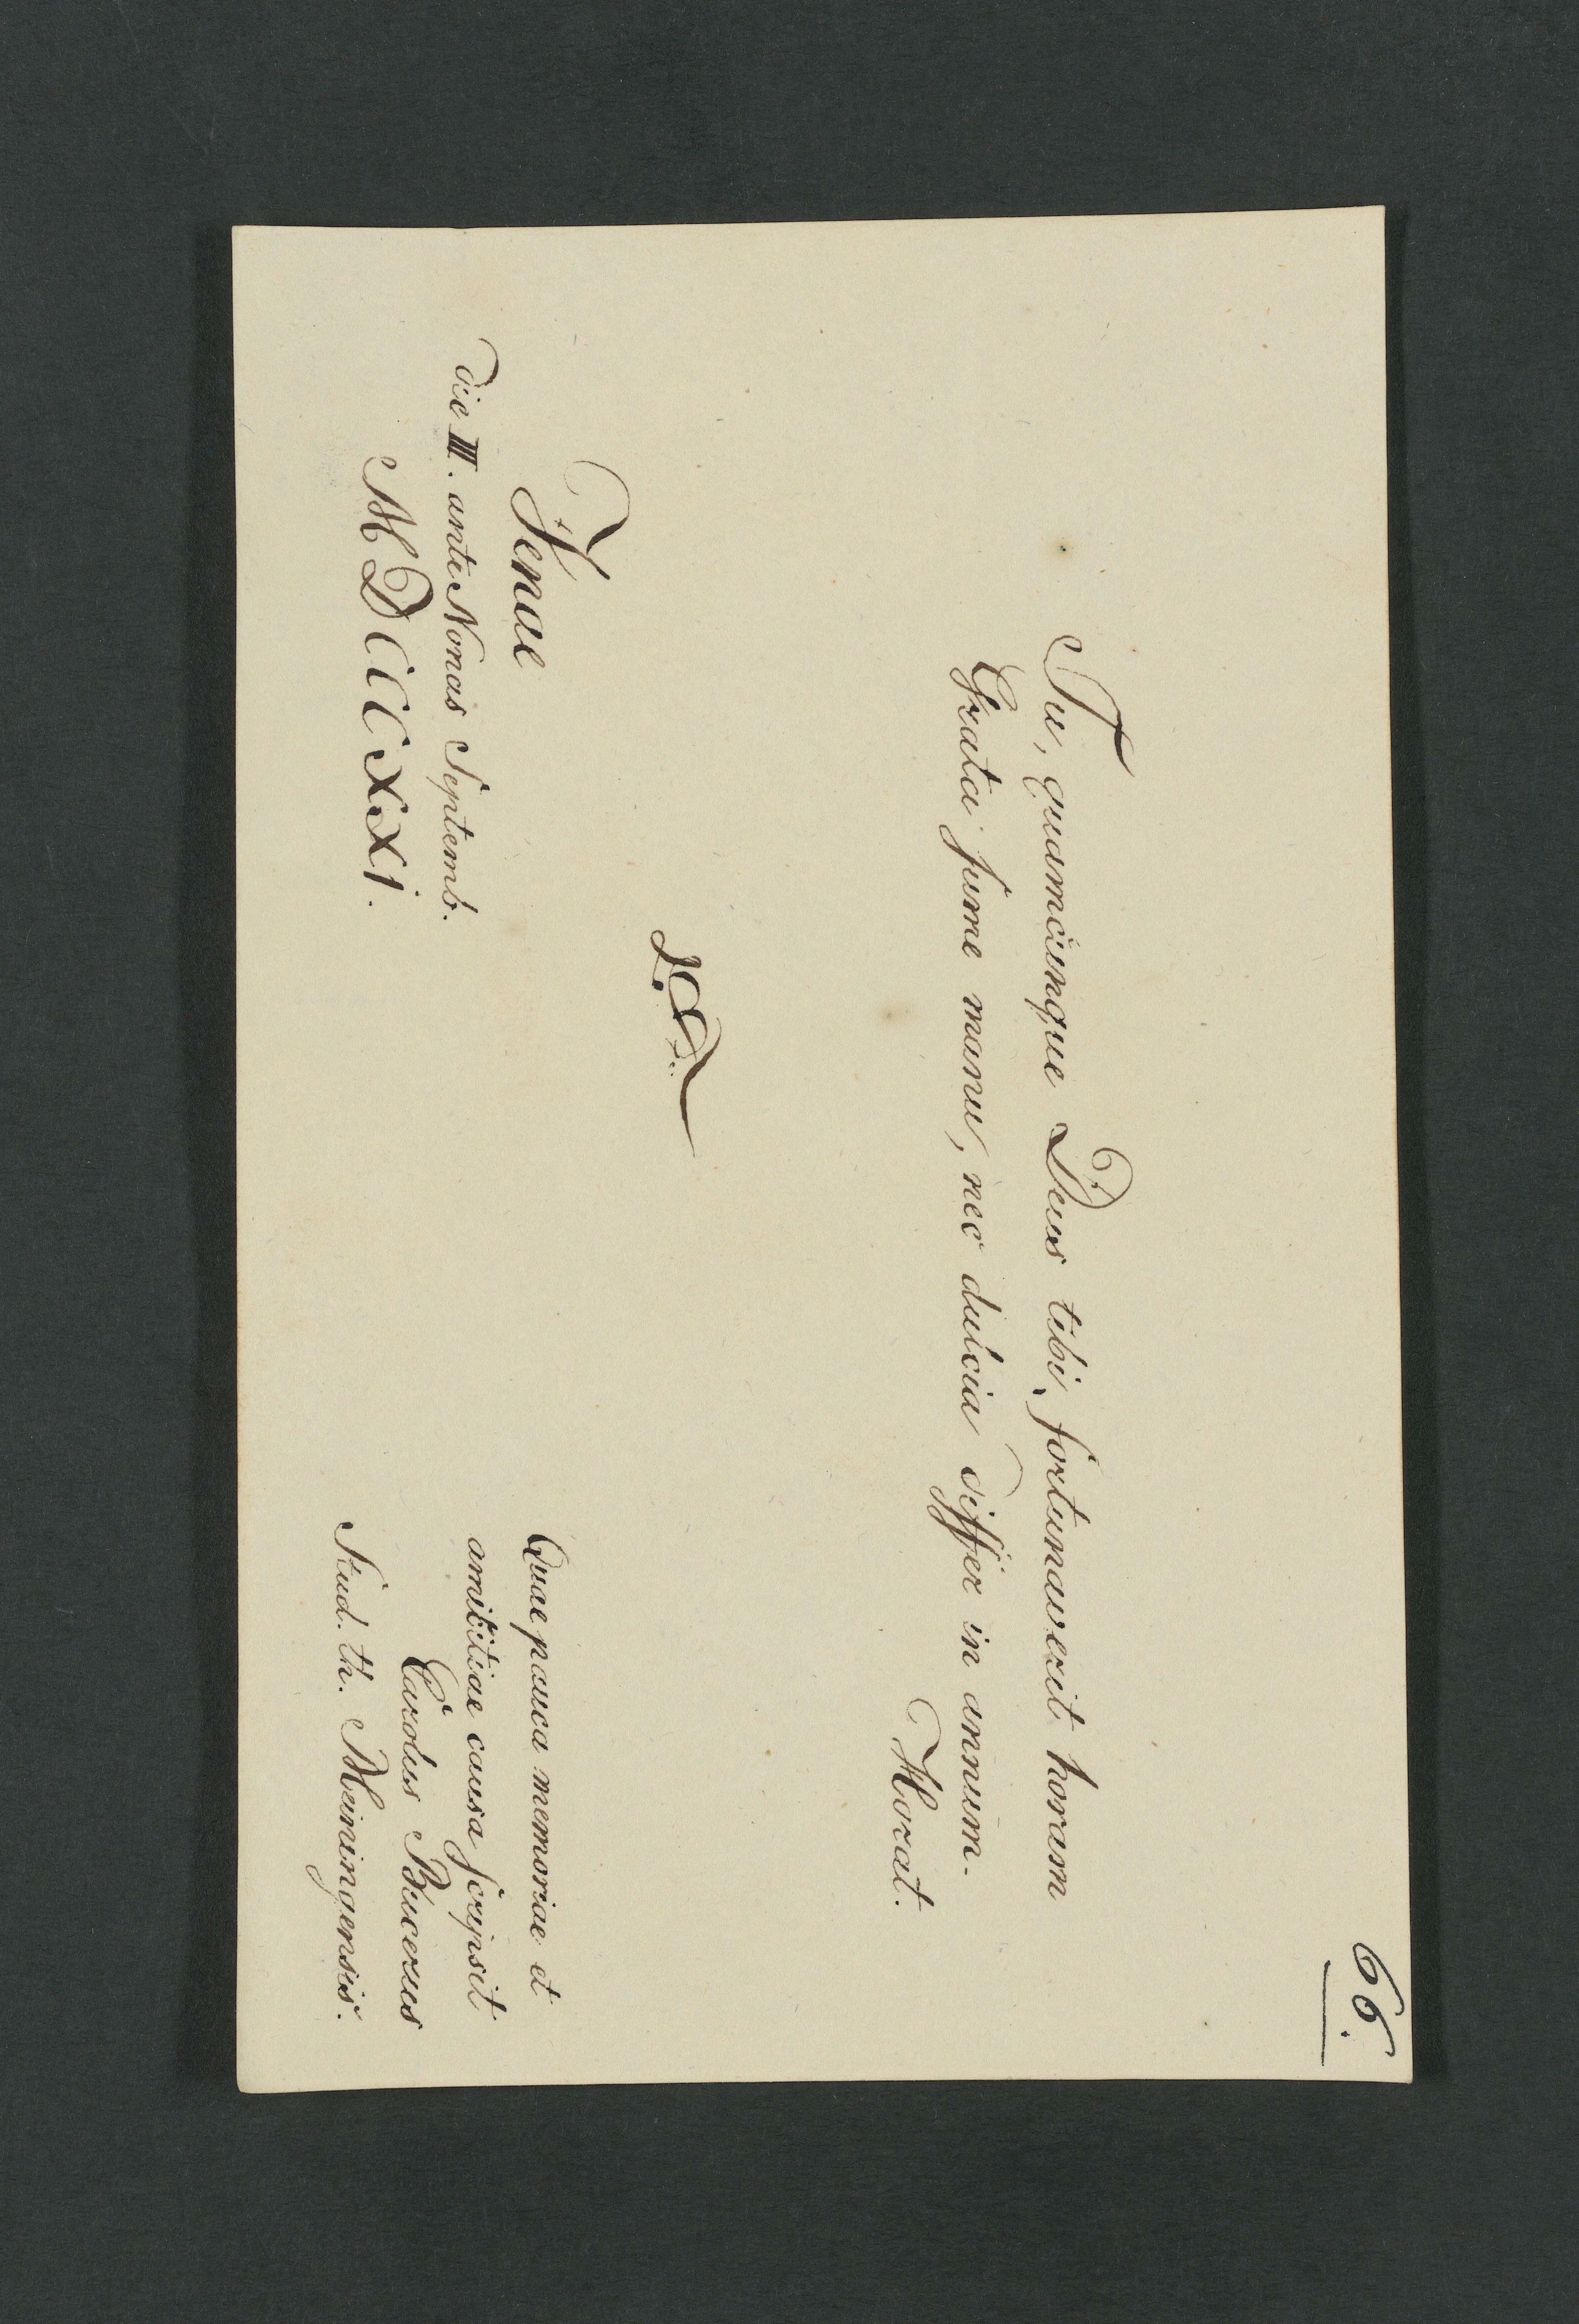 66.
Tu, quamcunque Deus tibi fortunaverit horam
Grata sume manu, nec dulcia differ in annum.
Horat.
Jenae
die III. ante Nonas Septemb.
MDCCCXXI.
Quae pauca memoriae et
amicitiae causa scripsit
Carolus Bucerus
Stud. th. Meiningensis.